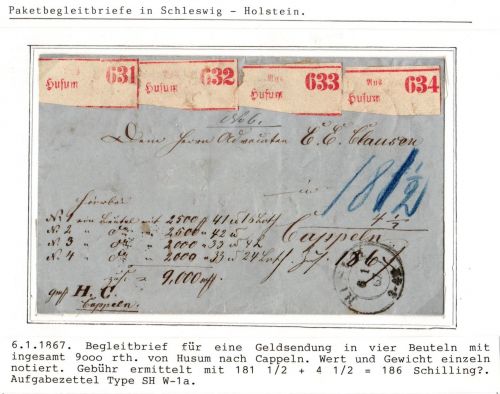 Paketbegleitbriefe in Schleswig - Holstein.
Aus Husum 631
Aus Husum 632
Aus Husum 633
Aus Husum 634
No 6.
Dem Herrn Advocaten C. C. Clauson
in
181 1/2
4 1/2
Cappeln
186
Hierbei
No 1 ein Beutel mit 2500
No 2 2500
No 3 2000
No 4 2000
9,000
H. C.
Cappeln.
6.1.1867. Begleitbrief für eine Geldsendung in vier Beuteln mit
insgesamt 9ooo rth. von Husum nach Cappeln. Wert und Gewicht einzeln
notiert. Gebühr ermittelt mit 181 1/2 + 4 1/2 = 186 Schilling?.
Aufgabezettel Type SH W-1a.